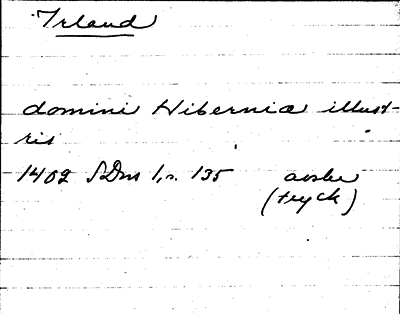 Irland
domini Hibernia illust-
ris
1402 SDns 1, s. 135 avskr
(tryck)